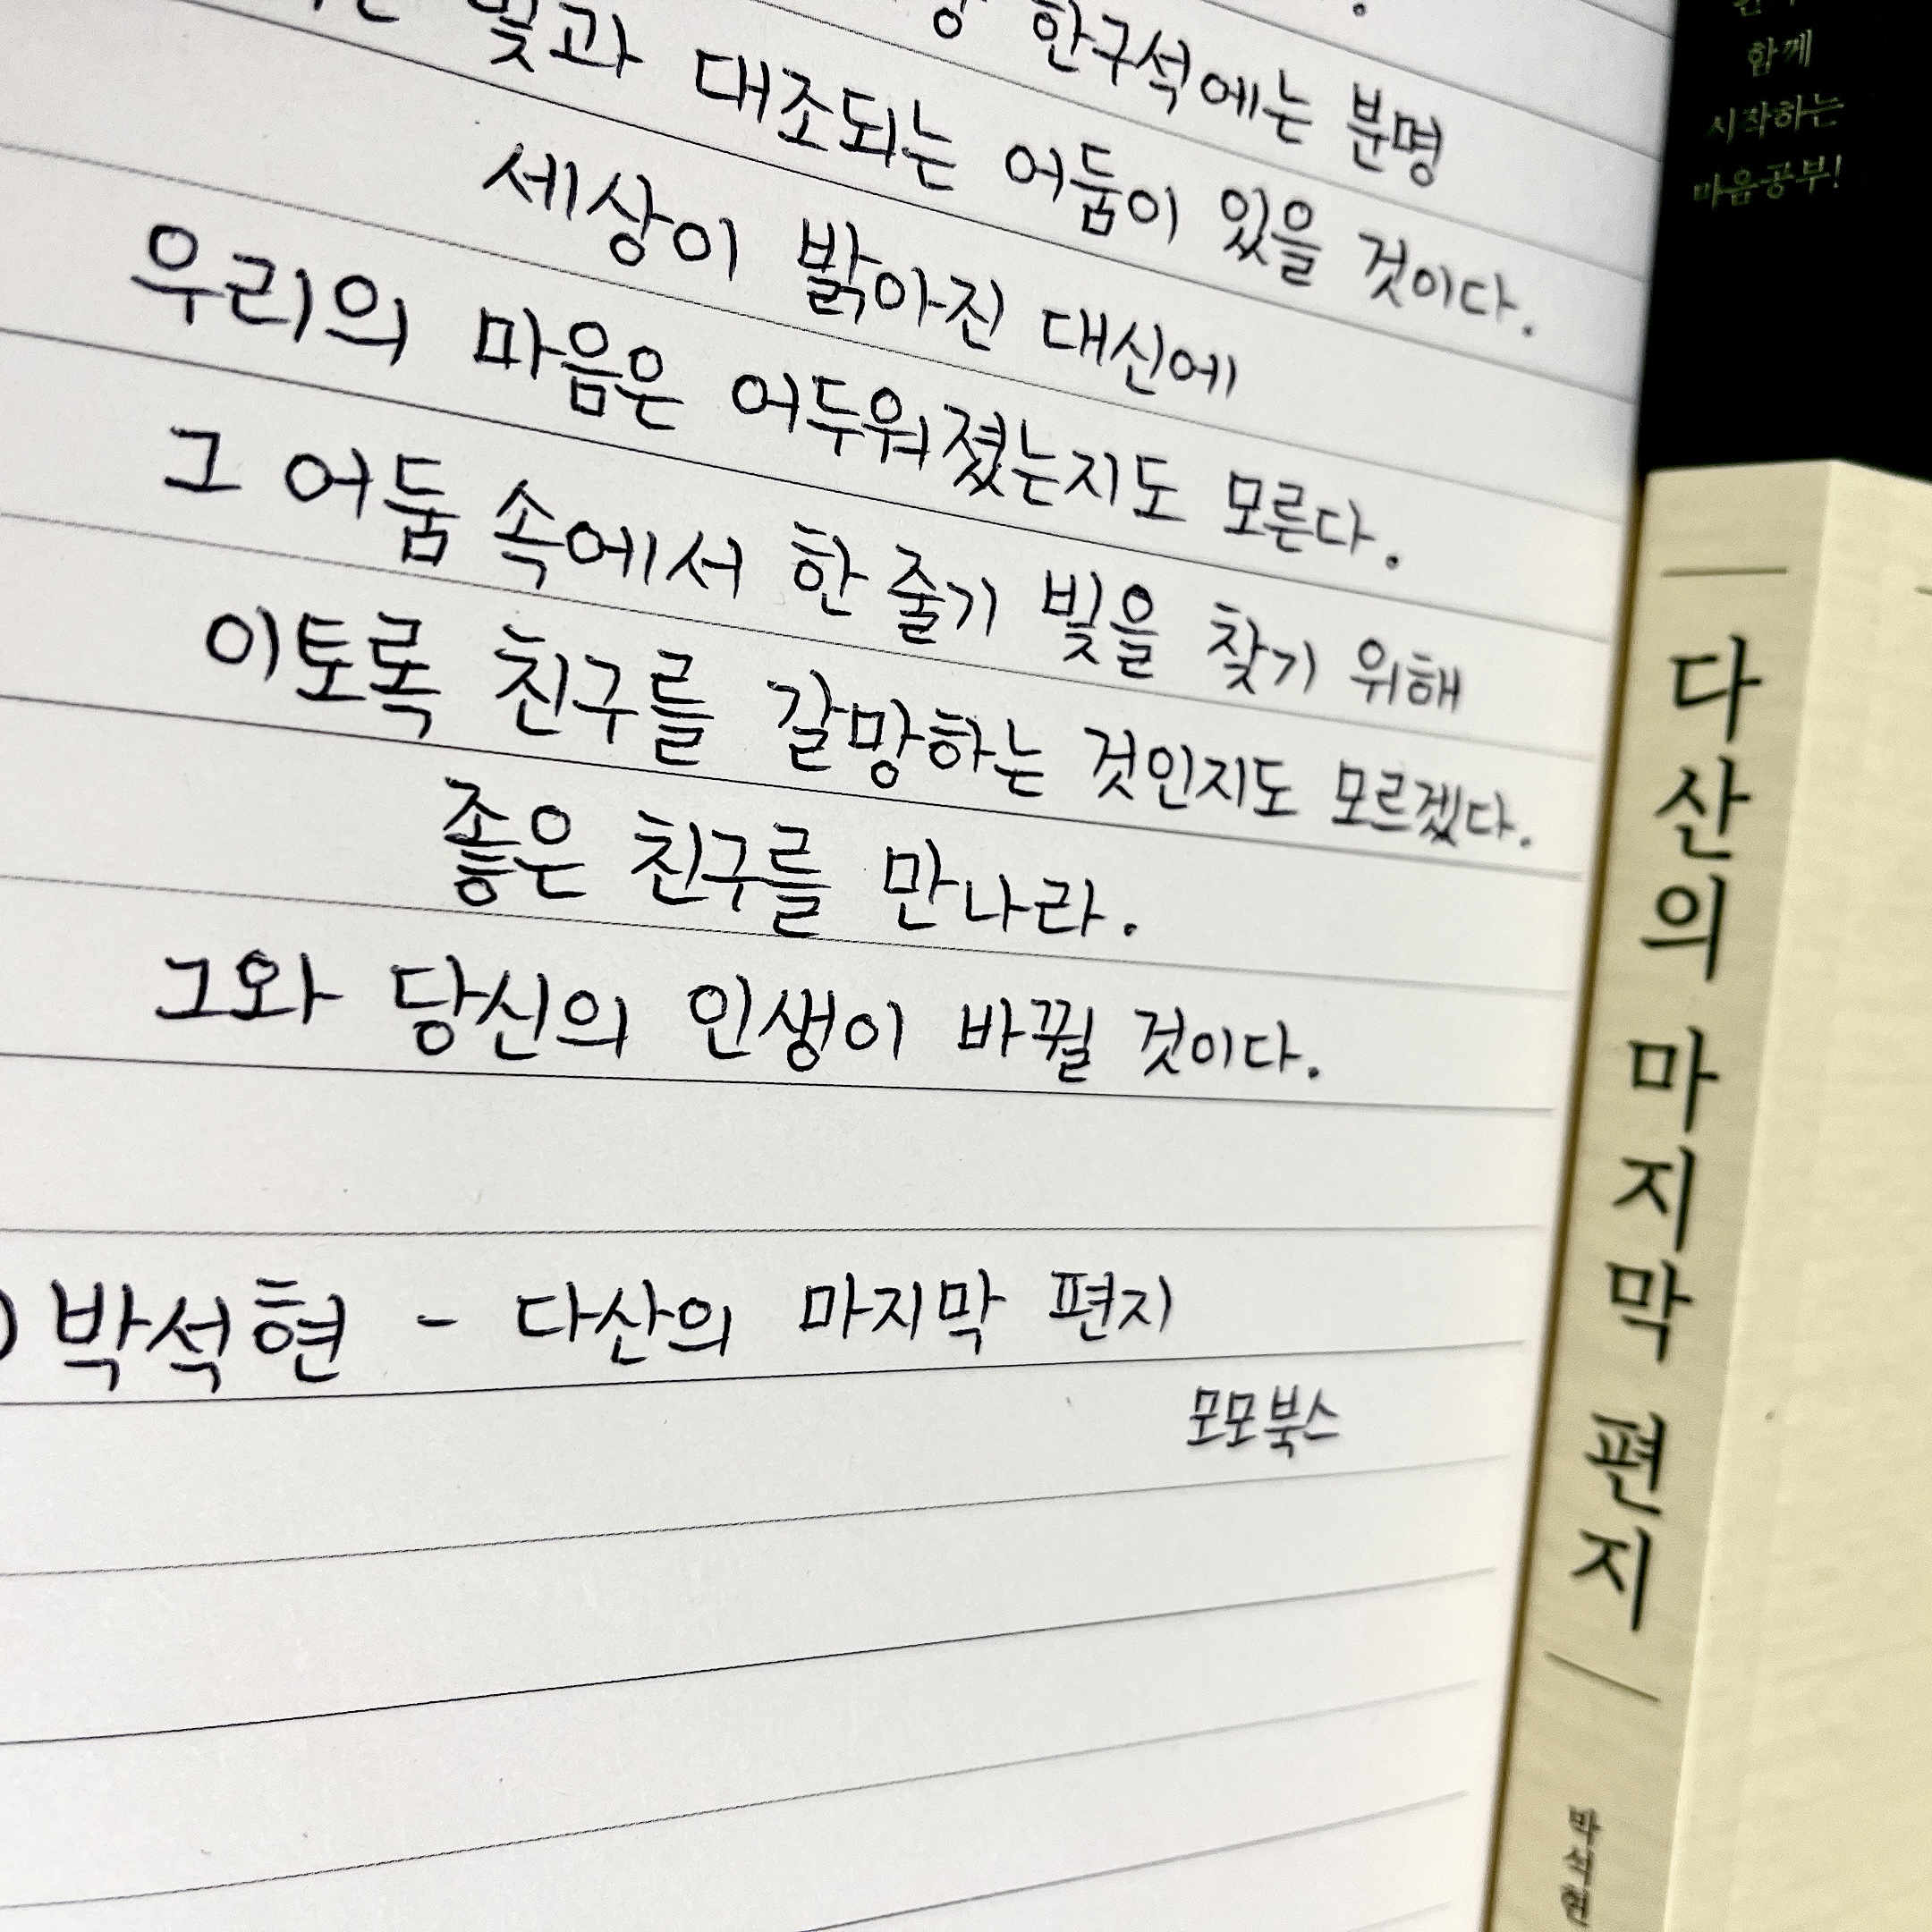 한구석에는 분명
빛과 대조되는 어둠이 있을 것이다.
세상이 밝아진 대신에
우리의 마음은 어두워졌는지도 모른다.
그 어둠 속에서 한 줄기 빛을 찾기 위해
이토록 친구를 갈망하는 것인지도 모르겠다.
좋은 친구를 만나라.
그와 당신의 인생이 바뀔 것이다.
박석현 - 다산의 마지막 편지
모모북스
함께
시작하는
마음공부!
다산의 마지막 편지
박석현